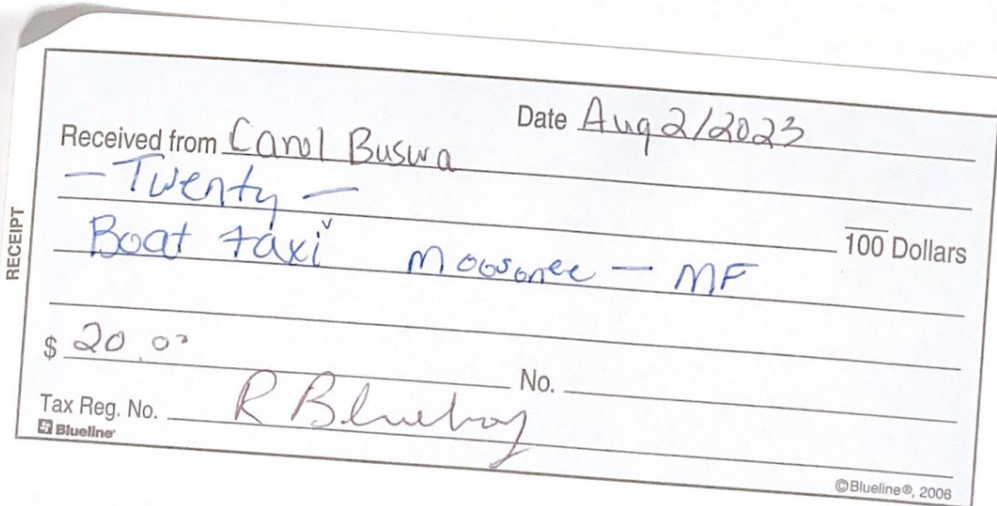 Date Aug 2/2023
Received from Carol Buswa
— Twenty —
100 Dollars
Boat taxi Moosonee — MF
$ 20.00
No.
Tax Reg. No. R Blueboy
Blueline
©Blueline®, 2006
RECEIPT